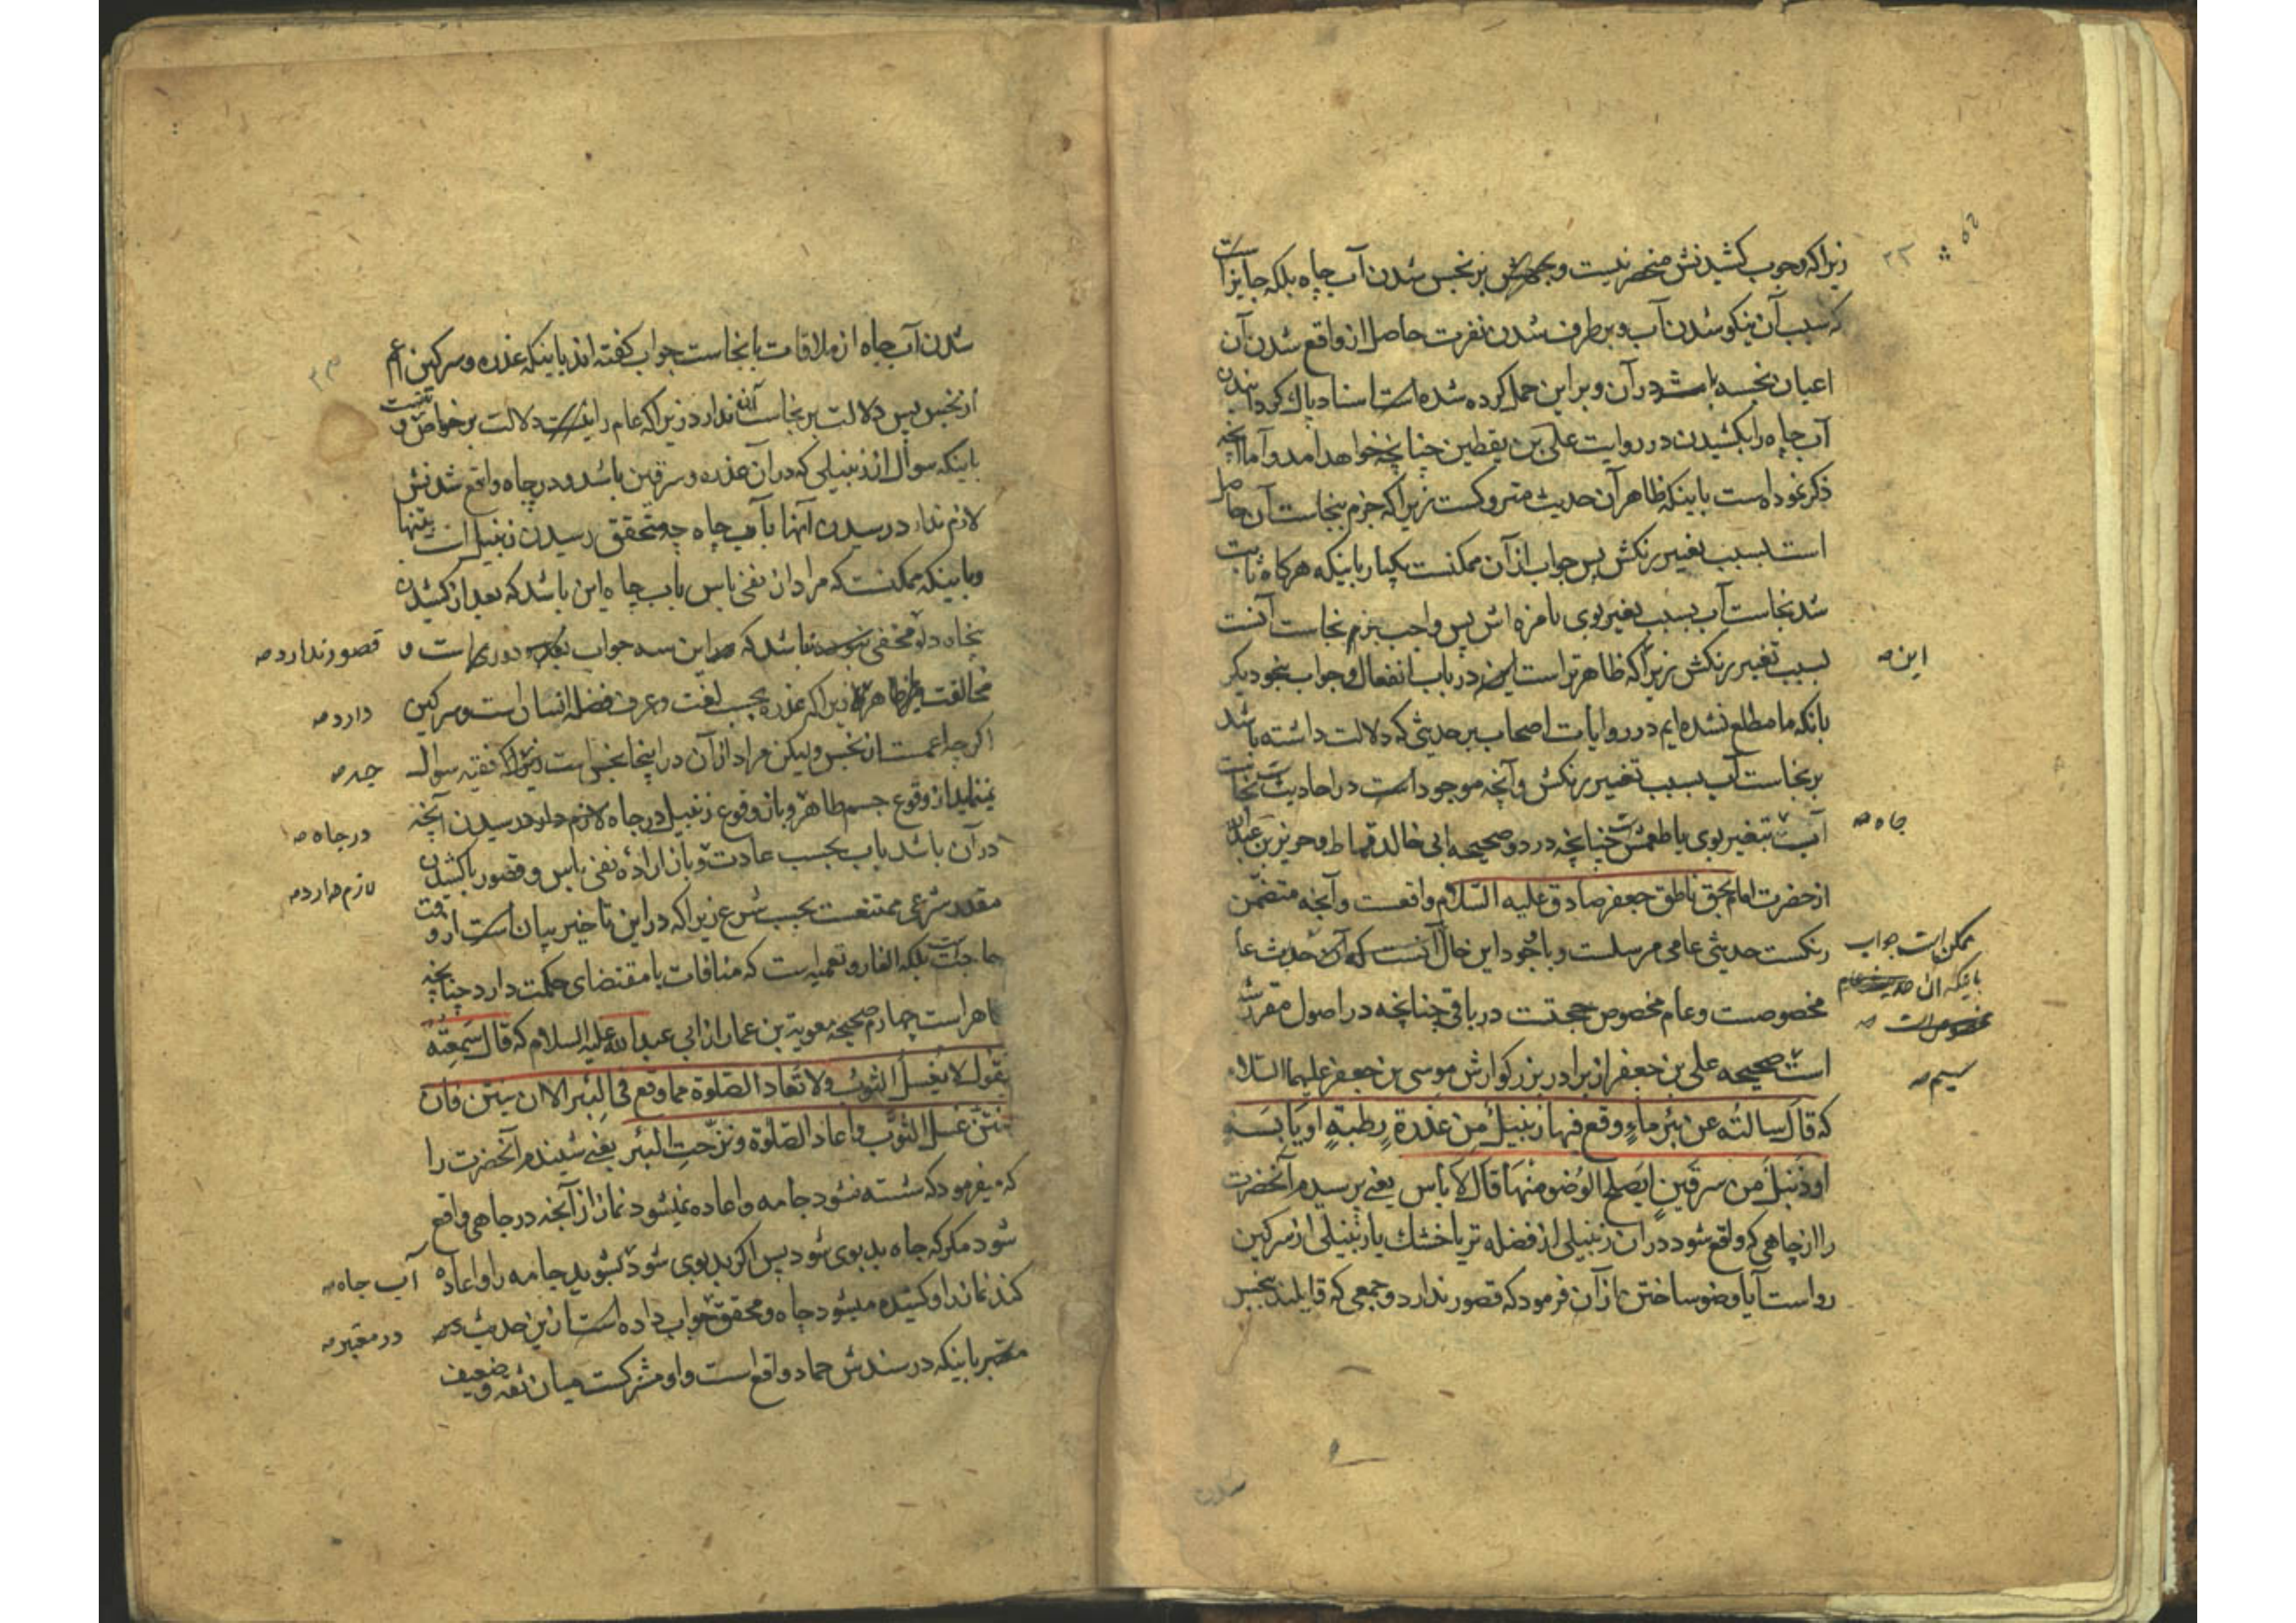 زیرا که وجوب کشیدنش منحصر نیست وجهش بر نجس شدن آب چاه بلکه جایز است
که سبب آن نیکو شدن آب و بر طرف شدن نفرت حاصل از واقع شدن آن
اعیان نجسه باشد در آن و بر این حمل کرده شده است اسناد پاک کردانیدن
آب چاه را بکشیدن در روایت علی بن یقطین چنانچه خواهد آمد و اما آنچه
ذکر نموده است باینکه ظاهر آن حدیث متروکست زیرا که جزم بنجاست آن حاصل
است بسبب تغییر رنکش پس جواب از آن ممکنست یکبار باینکه هرکاه ثابت
شد نجاست آب بسبب تغییر بوی یا مزه اش پس واجب جزم نجاست آنست
بسبب تغییر رنکش زیرا که ظاهرتر است این در باب انفعال و جواب بنحو دیکر
این صه
بانکه ما مطلع نشده ایم در روایات اصحاب بر حدیثی که دلالت داشته باشد
بر نجاست آب بسبب تغییر رنکش و آنچه موجود است در احادیث نجاست
آبست بتغیر بوی یا طعمش چنانچه در دو صحیحه ابی خالد قماط و حریز بن عبدالله
چاه صه
از حضرت امام بحق ناطق جعفر صادق علیه السلام واقعست و آنچه متضمن
رنکست حدیثی عامی مرسلست و با وجود این حال آنست که آن حدیث عا
ممکن است جواب
باینکه ان حدیث عام
مخصوصست و عام مخصوص حجتست در باقی چنانچه در اصول مقرر شده
مخصوص است صه
است صحیحه علی بن جعفر از برادر بزرکوارش موسی بن جعفر علیهما السلام
سیم صه
که قال سالته عن بئر ماء وقع فیها زنبیل من عذرة رطبة او یابسة
او زنبیل من سرقین ایصلح الوضوء منها قال لا باس یعنی پرسیدم آنحضرت
را از چاهی که واقع شود در ان زنبیلی از فضله تر یا خشک یا زنبیلی از سرکین
رواست آیا وضو ساختن از آن فرمود که قصور ندارد و جمعی که قایلند بنجس
شدن
شدن آب چاه از ملاقات با نجاست جواب کفته اند باینکه عذره و سرکین اعم
از نجس پس دلالت بر نجاست آن ندارد زیرا که عام را نیست دلالت بر خواص و
باینکه سوال از زنبیلی که در آن عذره و سرقین باشد و در چاه واقع شدنش
لازم ندارد رسیدن آنها بآب چاه چه متحقق رسیدن زنبیل است بتنها
و باینکه ممکنست که مراد از نفی باس بآب چاه این باشد که بعد از کشیدن
پنجاه دلو مخفی نباشد که این سه جواب دور است و
قصور ندارد صه
مخالفت ظاهر زیرا که عذره بحسب لغت و عرف فضله انسان است و سرکین
دارد صه
اکرچه اعمست از نجس ولیکن مراد از آن در اینجا نجس است زیرا که فقیه سوال
چه صه
نمینماید از وقوع جسم طاهر و باز وقوع زنبیل در چاه لازم دارد رسیدن آنچه
در چاه صه
در آن باشد بآب بحسب عادت و باز اراده نفی باس و قصور با کشیدن
لازم دارد صه
مقدر شرعی ممتنعست بحسب شرع زیرا که در این تاخیر بیان است از وقت
حاجت بلکه الغاز و تعمیه است که منافات با مقتضای حکمت دارد چنانچه
ظاهر است چهارم صحیحه معویة بن عمار از ابی عبد الله علیه السلام که قال سمعته
یقول لا یغسل الثوب ولا تعاد الصلوة مما وقع فی البئر الا ان ینتن فان
انتن غسل الثوب و اعاد الصلوة و نزحت البئر یعنی شنیدم آنحضرت را
که میفرمود که شسته نشود جامه و اعاده نمیشود نماز از آنچه در چاهی واقع
شود مکر که چاه بدبوی شود پس اکر بدبوی شود بشوید جامه را و اعاده
آب چاه صه
کند نماز او کشیده میشود چاه و محقق جواب داده است از این حدیث در
در معتبر صه
معتبر باینکه در سندش حماد واقع است و او مشترکست میان ثقه و ضعیف